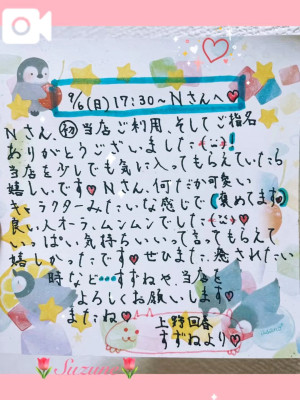 9/6(日)17:30~Nさんへ♥
Nさん、初当店ご利用、そしてご指名
ありがとうございました!
当店を少しでも気に入ってもらえていたら
嬉しいです♥Nさん、何だか可愛い
キャラクターみたいな感じで(褒めてます)
良い人オーラムンムンでした
いっぱい気持ちいいってもらえて
嬉しかったです♥ぜひまた、癒されたい
時など…すずねや、当店を
よろしくお願いします
またね♥
上野回春
すずねより♥
Suzune